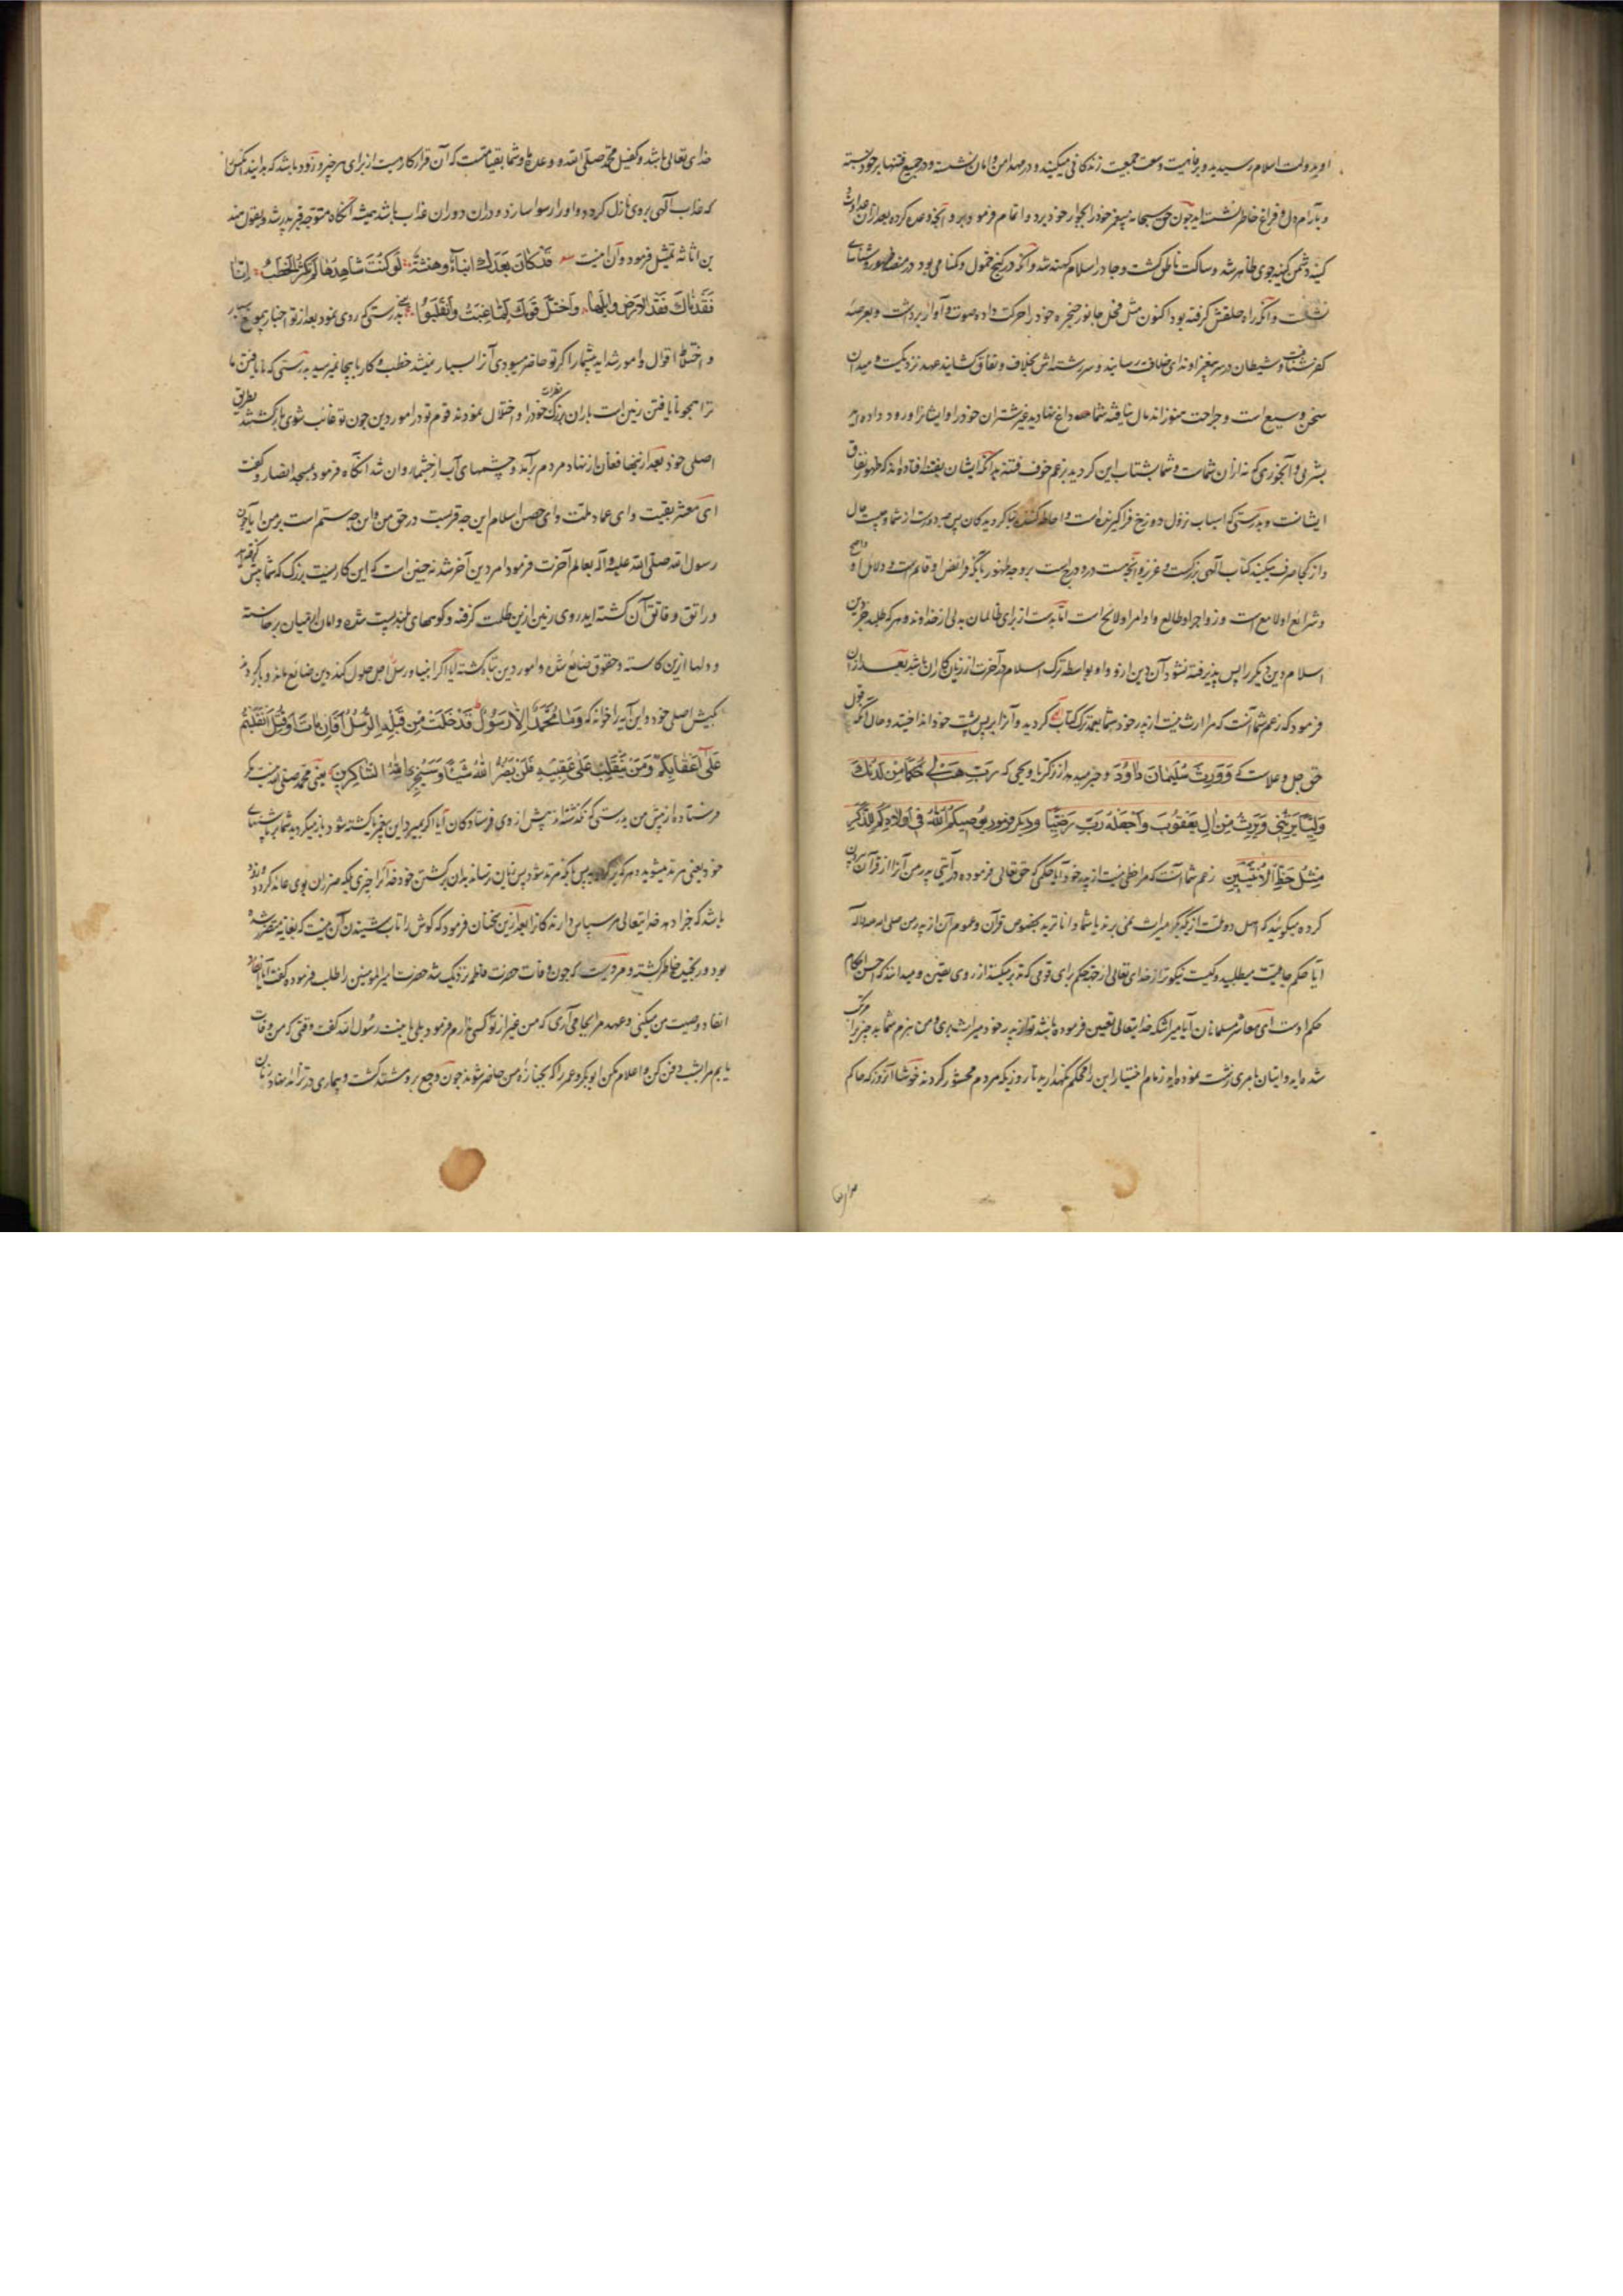 او بدولت اسلام رسیدید و برفاهیت و سعت جمعیت زندکانی میکنید و در مهد امن و امان نشسته و در جمیع فتنها بر خود بسته
و بآرام دل و فراغ خاطر نشسته اید چون حق سبحانه پیغمبر خود را بجوار خود برد و اتمام فرمود برو آنچه وعده کرده بعد از آن عداوت
کینه دشمن کینه جوی ظاهر شد و ساکت ناطق کشت و جادر اسلام کهنه شد و آنکه در کنج خمول و کمنامی بود در منصه ظهور
و آنکه راه حلقش کرفته بود اکنون مثل فحل جانور حنجره خود را حرکت داده صوت و آواز برداشت و بعرصه
کفر شتافت و شیطان در سر
سخن وسیع است و جراحت هنوز اندمال نیافته شما داغ نهادید غیر شتران خود را و ایشانرا ورود داده اید
بشربی و آبخوری که نه از آن شماست و شما بشتاب این کردید بزعم خوف فتنه بدانکه ایشان بفتنه افتاده اند که ظهور نفاق
ایشانست و بدرستی که اسباب نزول دوزخ فراکیرنده است و احاطه کننده
و از کجا صرف میکنید کتاب الهی بزرکست و عزیز و آنچه در و درج است بر وجه ظهور
و شرایع او لامع است و زواجر او طالع و اوامر او لائح است از برای ظالمان بدلی از خداوند و هر که طلبد جز دین
اسلام دین دیکر را پس پذیرفته نشود آن دین ازو و او بواسطه ترک اسلام در آخرت از زیان کاران باشد بعد از آن
فرمود که زعم شما آنست که مرا ارث نیست از پدر خود شما بعمد ترک کتاب الله کردید و آنرا بر پس پشت خود انداختید و حال آنکه قول
حق جل و علاست که وَوَرِثَ سُلَیمانَ داوُدَ و خبر میدهد از زکریا و یحیی که رَبِّ هَب لی حُکمًا مِن لَدُنکَ
وَلِیّا یَرِثُنی وَیَرِثُ مِن الِ یَعقوبَ وَاجعَلهُ رَبِّ رَضِیّا و دیکر فرمود یوصیکُمُ اللهُ فی اَولادِکُم لِلذَّکَرِ
مِثلُ حَظِّ الاُنثَیَینِ زعم شما آنست که مرا حظی نیست از پدر خود آیا حکمی که حق تعالی فرموده در آیتی پدر من آنرا از قرآن بیرون
کرده میکوئید که اهل دو ملت از یکدیکر میراث نمی برند یا شما داناترید بخصوص قرآن و عموم آن از پدر من صلی الله علیه و آله
ایا حکم جاهلیت میطلبید و کیست نیکوتر از خدای تعالی از جهة حکم برای قومی که تدبر میکنند از روی یقین و میدانند که احسن احکام
حکم اوست ای معاشر مسلمانان آیا میراثیکه خدایتعالی تعیین فرموده باشد تو از پدر خود میراث بری و من نبرم شما به چیز
شده اید و ایتان بامری زشت نموده اید زمام اختیار این را محکم نکهدارید تا روزیکه مردم محشور کردند خوشا آن روز که حاکم
خدای تعالی باشد و کفیل محمد صلی الله و وعده ما و شما بقیامتست که آن قرارکاریست از برای هر خبر و زود باشد که بدانید آنکس را
که عذاب الهی بروی نازل کردد و او را رسوا سازد و در آن دوران عذاب باشد همیشه آنکاه متوجه قبر پدر شد و بقول هند
بن اثاثه تمثیل فرمود و آن اینست قَد کانَ بَعدَکَ اَنباءٌ وهَنبَثَةٌ لَو کُنتَ شاهِدَها لَم یَکثُرِ الخَطبُ اِنّا
فَقَدناکَ فَقدَ الاَرضِ وابِلَها وَاختَلَّ قَومُکَ لَمّا غِبتَ وَانقَلَبوا بدرستی که روی نمود بعد از تو اخبار
و اختلاط اقوال و امور شداید بیشمار اکر تو حاضر میبودی آنرا بسیار نمیشد خطب و کار باینجا نمیرسید بدرستی که ما نایافتن ما
ترا همچو نایافتن زمین است باران بزرک قطرات خود را و اختلال نمودند قوم تو در امور دین چون تو غائب شوی بازکشتند بطریق
اصلی خود بعد از اینها فغان از نهاد مردم برآمد و چشمهای آب از چشمها روان شد آنکاه فرمود بمسجد انصار و کفت
ای معشر بقیت و ای عماد ملت و ای حصن اسلام این چه فترتست در حق من و این چه ستم است بر من آیا چون
رسول الله صلی الله علیه و آله بعالم آخرت فرمود امر دین آخر شد نه چنین است که این کاریست بزرک که شما پیش
و راتق و فاتق آن کشته اید روی زمین ازین ظلمت کرفته و کوههای بلند پست شده و امان از میان برخاسته
و دلها ازین کاسته و حقوق ضایع شده و امور دین تباه کشته آیا اکر انبیا و رسل را اجل حلول کند دین ضایع ماند و باز کردند
کیش اصلی خود و این آیه را خواند که وَما مُحَمَّدٌ اِلّا رَسولٌ قَد خَلَت مِن قَبلِهِ الرُّسُلُ اَفَاِن ماتَ اَو قُتِلَ انقَلَبتُم
عَلی اَعقابِکُم وَمَن یَنقَلِب عَلی عَقِبَیهِ فَلَن یَضُرَّ اللهَ شَیئًا وَسَیَجزِی اللهُ الشّاکِرینَ یعنی محمد صلی الله نیست مکر
فرستاده از پیش من بدرستی که کذشته اند پیش از وی فرستادکان آیا اکر بمیرد این پیغمبر یا کشته شود باز میکردید شما بر پاشنهای
خود یعنی مرتد میشوید و هر که برکردد پس باز که مرتد شود پس زیان نرساند بدان برکشتن خود خدا را چیزی بلکه ضرر آن بوی عائد کردد و زود
باشد که جزا دهد خدایتعالی مر سپاس دارندکانرا بعد ازین سخنان فرمود که کوش را تاب شنیدن آن نیست که بغایه متضرر شده
بود و رنجیده خاطر کشته و مرویست که چون وفات حضرت فاطمه نزدیک شد حضرت امیرالمؤمنین را طلب فرموده کفت آیا انفاذ
انفاذ وصیت من میکنی و عهد مرا بجا می آری که من غیر از تو کسی ندارم فرمود بلی یا بنت رسول الله کفت وقتی که من وفات
یابم مرا بشب دفن کن و اعلام مکن ابوبکر و عمر را که بجنازه من حاضر شوند چون وجع برو مشتد کشت و بیماری